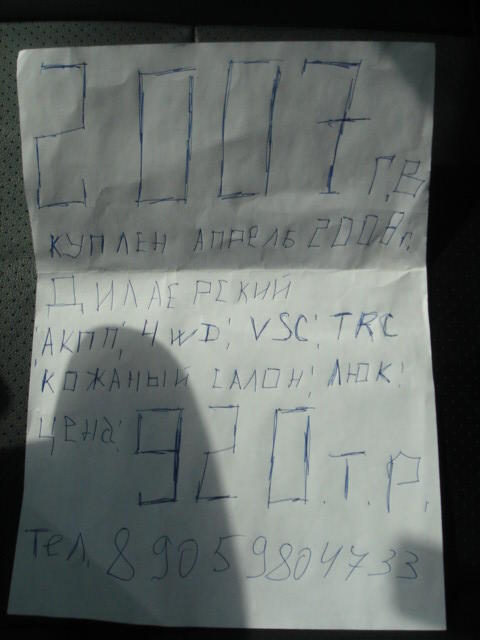 2007 г.в.
КУПЛЕН АПРЕЛЬ 2008 г.
ДИЛАЕРСКИЙ
АКПП, 4WD, VSC, TRC
КОЖАНЫЙ САЛОН, ЛЮК!
ЦЕНА: 920.Т.Р.
Тел. 89059804733